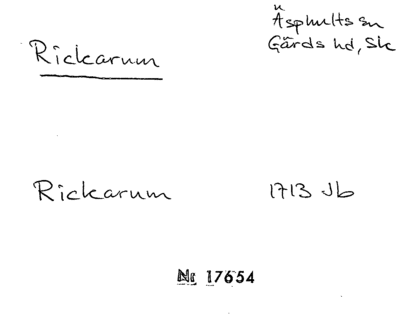 Rickarum
Äsphults sn
Gärds hd, Sk
Rickarum 1713 Jb
Nr 17654